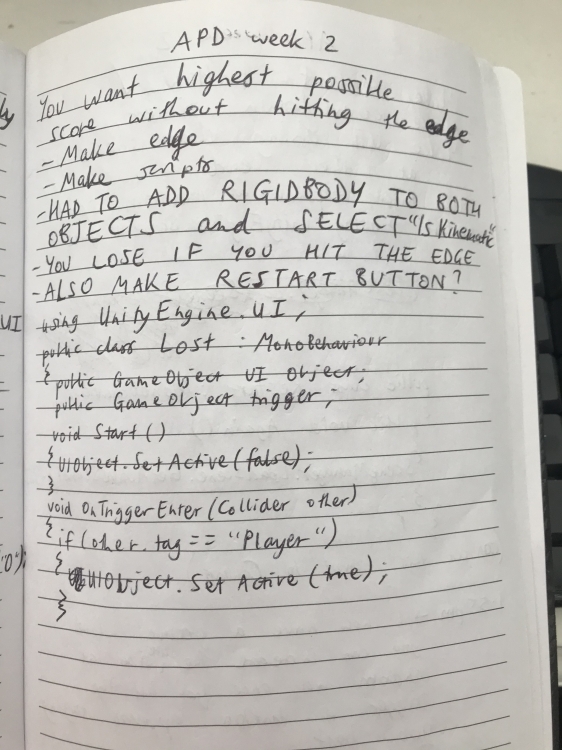 APD week 2
You want highest possible
score without hitting the edge
- Make edge
- Make scripts
- HAD TO ADD RIGIDBODY TO BOTH
OBJECTS and SELECT "Is Kinematic"
- YOU LOSE IF YOU HIT THE EDGE
- ALSO MAKE RESTART BUTTON?
UI
using UnityEngine.UI;
public class Lost : MonoBehaviour
{ public GameObject UI Object;
public GameObject trigger;
void Start ()
{ UIObject.Set Active (false);
}
void OnTriggerEnter (Collider other)
{ if (other.tag == "Player")
{ UIObject.Set Active (true);
}
}
"0");